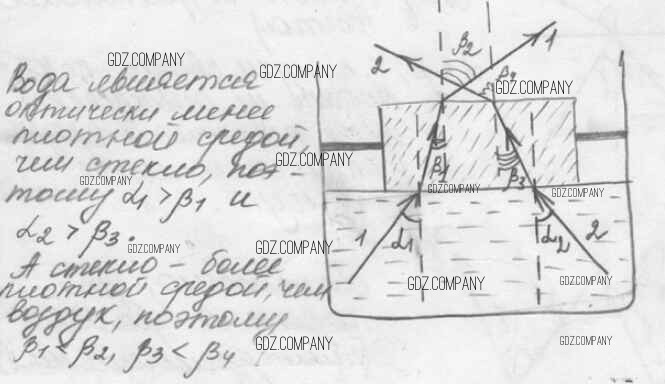 Вода является
оптически менее
плотной средой,
чем стекло, поэ-
тому α₁ > β₁ и
α₂ > β₃.
А стекло – более
плотной средой, чем
воздух, поэтому
β₁ < β₂, β₃ < β₄
2
β₂
1
β₁
β₃
1
α₁
α₂
2
GDZ.COMPANY
GDZ.COMPANY
GDZ.COMPANY
GDZ.COMPANY
GDZ.COMPANY
GDZ.COMPANY
GDZ.COMPANY
GDZ.COMPANY
GDZ.COMPANY
GDZ.COMPANY
GDZ.COMPANY
GDZ.COMPANY
GDZ.COMPANY